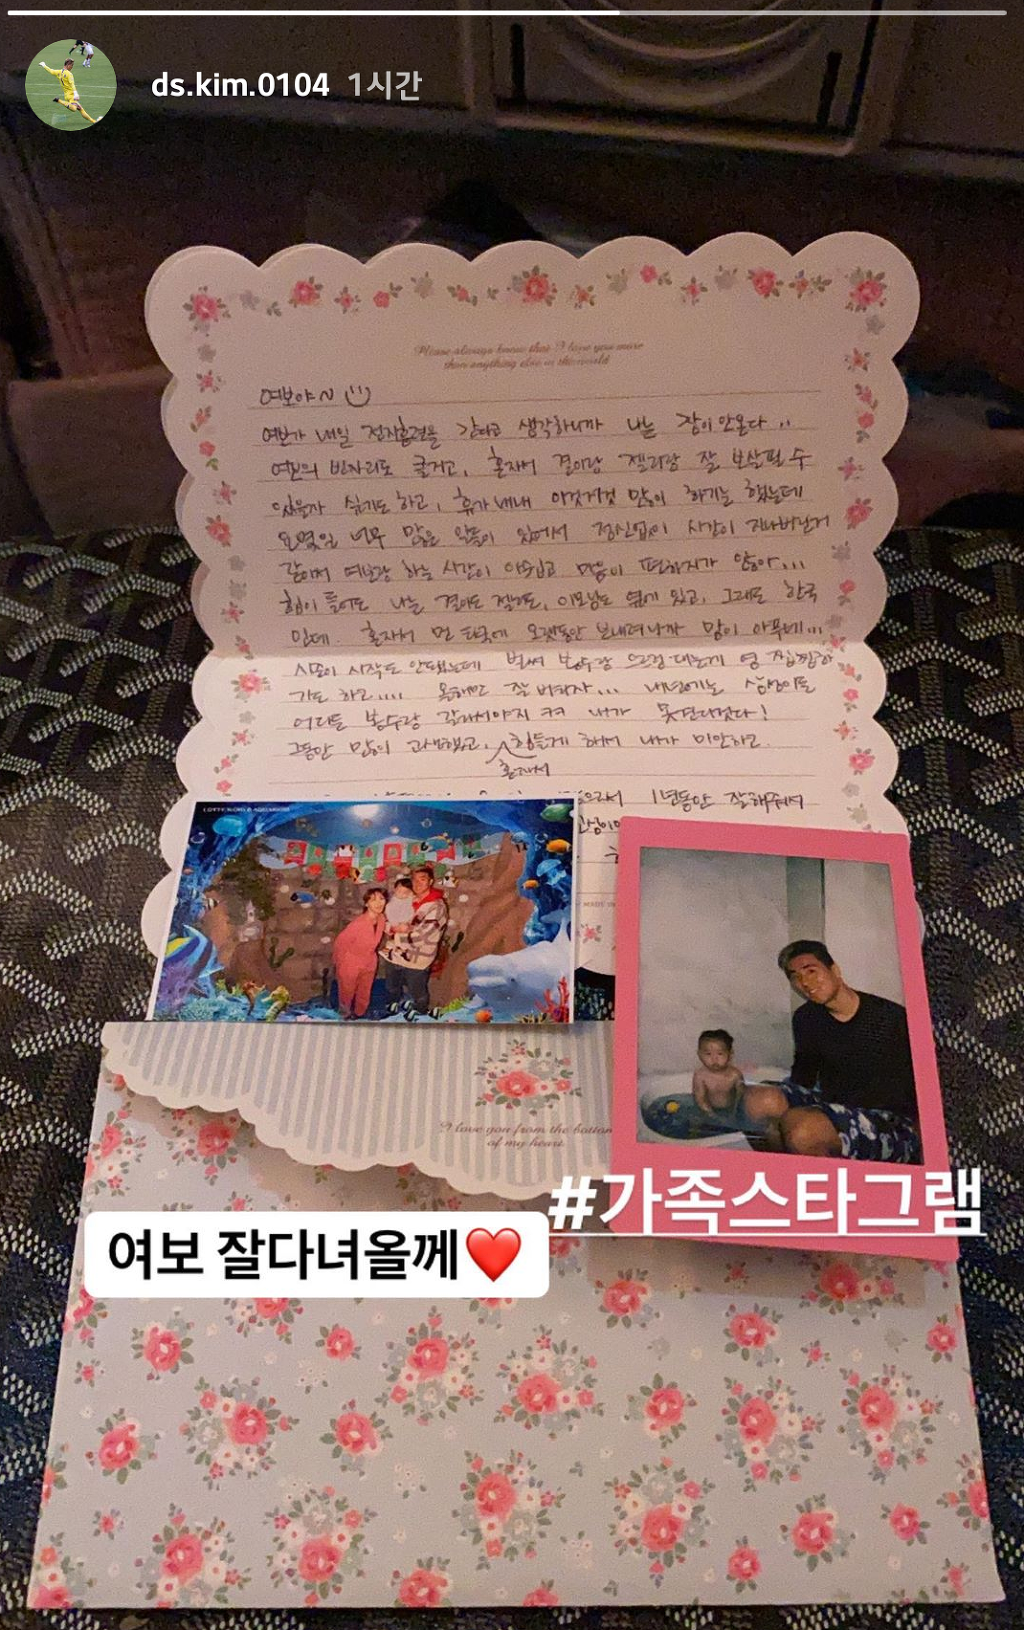 ds.kim.0104 1시간
Please always know that I love you more
than anything else in the world
여보야~
여보가 내일 전지훈련을 간다고 생각하니까 나는 잠이 안온다..
여보의 빈자리도 크고, 혼자서 결이랑 젤리랑 잘 보살필 수
있을까 싶기도 하고, 휴가내내 이것저것 많이 하기는 했는데
요 몇일 너무 많은 일들이 있어서 정신없이 시간이 지나버린거
같아서 여보랑 하는 시간이 아쉽고 마음이 편하지가 않아...
힘이 들어도 나는 결이도 젤리도, 이모님도 옆에 있고, 그래도 한국
인데. 혼자서 먼 타국에 오랫동안 보내려니까 맘이 아푸네...
시즌이 시작도 안했는데 벌써
가도 하고.... 올해만 잘 버티자... 내년에는
어디든 따라서야지 ㅋㅋ 내가 못
그동안 많이 고생했고, 힘들게 해서 내가 미안하고.
혼자서
1년동안 잘해줘서
LOTTE WORLD AQUARIUM
MADE IN
I love you from the bottom
of my heart.
#가족스타그램
여보 잘다녀올께❤️